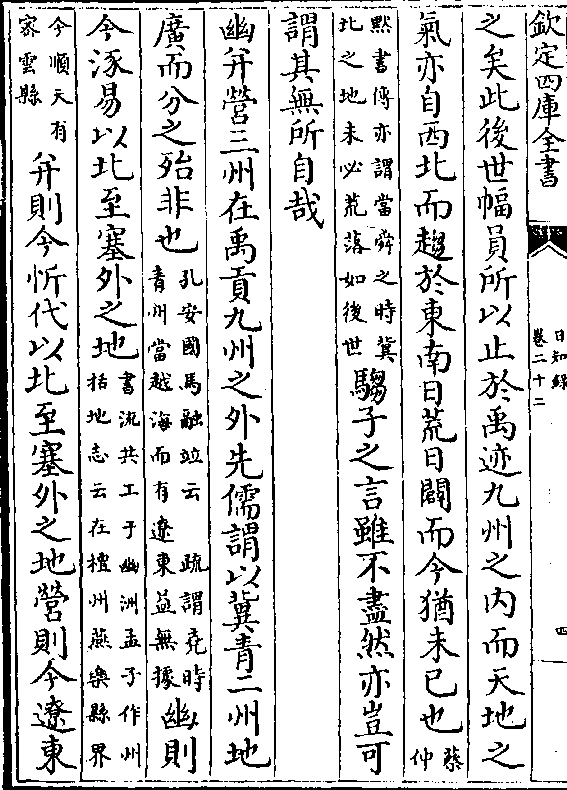 欽定四庫全書
日知錄
卷二十二
四
之矣此後世幅員所以止於禹迹九州之内而天地之
氣亦自西北而趨於東南日荒日闢而今猶未已也蔡仲
黙書傳亦謂當舜之時冀
北之地未必荒落如後世
騶子之言雖不盡然亦豈可
謂其無所自哉
幽并營三州在禹貢九州之外先儒謂以冀青二州地
廣而分之殆非也
孔安國馬融竝云
青州當越海而有遼東益無據
疏謂堯時
幽則
今涿易以北至塞外之地
書流共工于幽洲孟子作州
括地志云在檀州燕樂縣界
今順天有
宻雲縣
并則今忻代以北至塞外之地營則今遼東